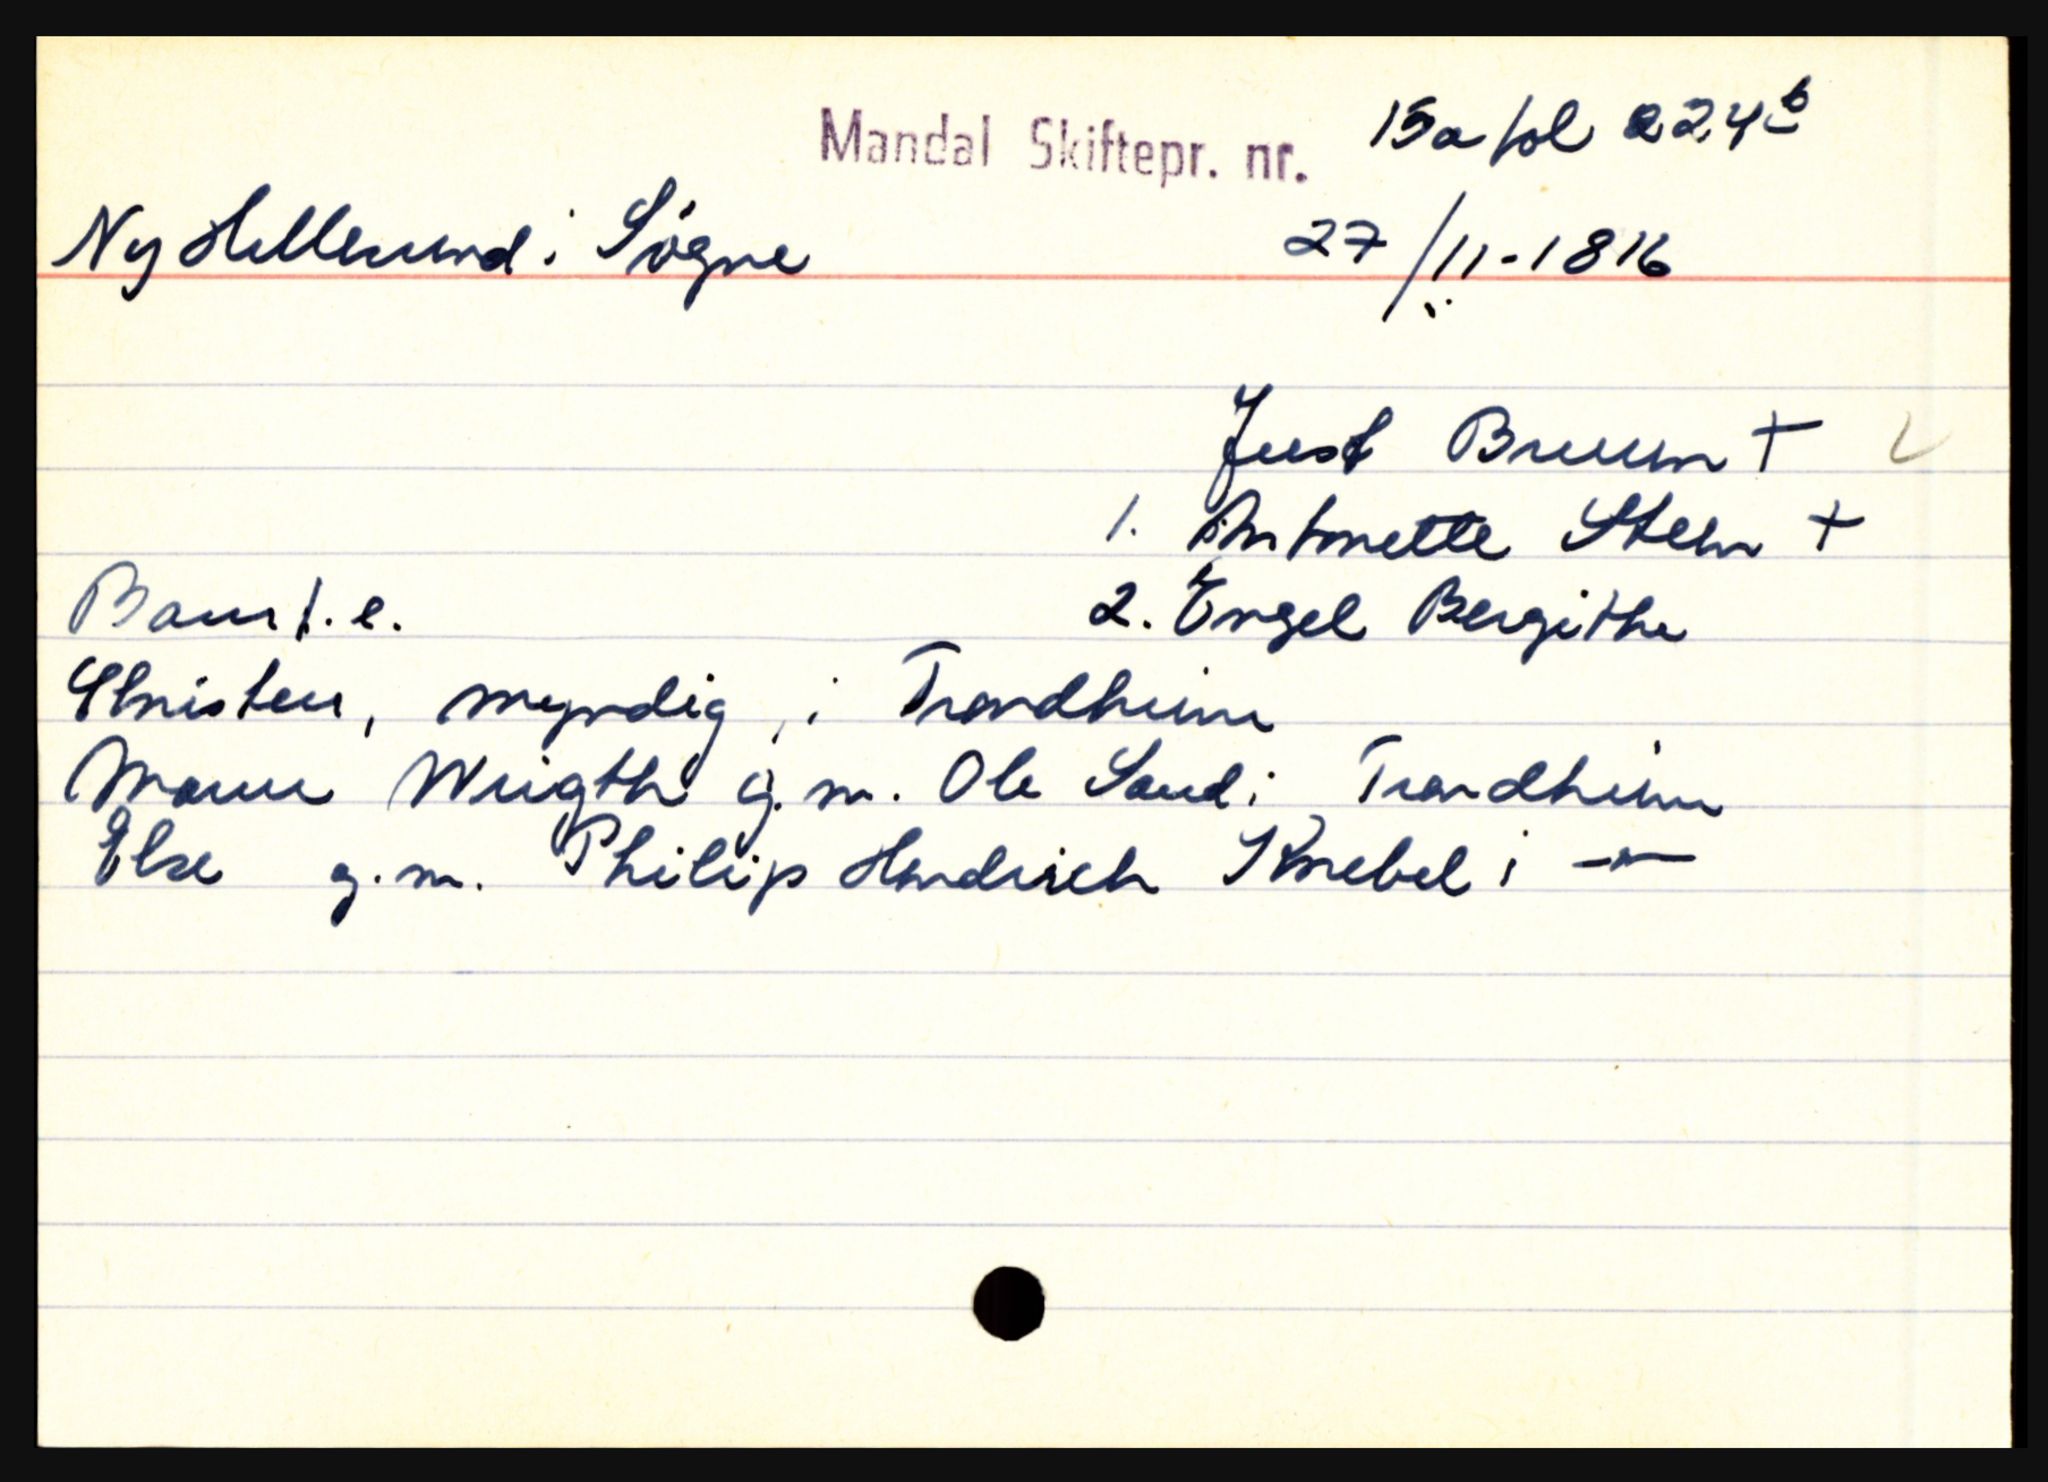 Mandal Skiftepr. nr. 15a fol 224b
Ny Hellesund i Søgne 27/11-1816
Just Bruun +
1. Antonette Stehn +
Barn f. e. 2. Engel Bergithe
Christen, myndig, i Trondheim
Maren Wrigth g. m. Ole Sand i Trondheim
Else g. m. Philip Hendrich Knebel i -"-